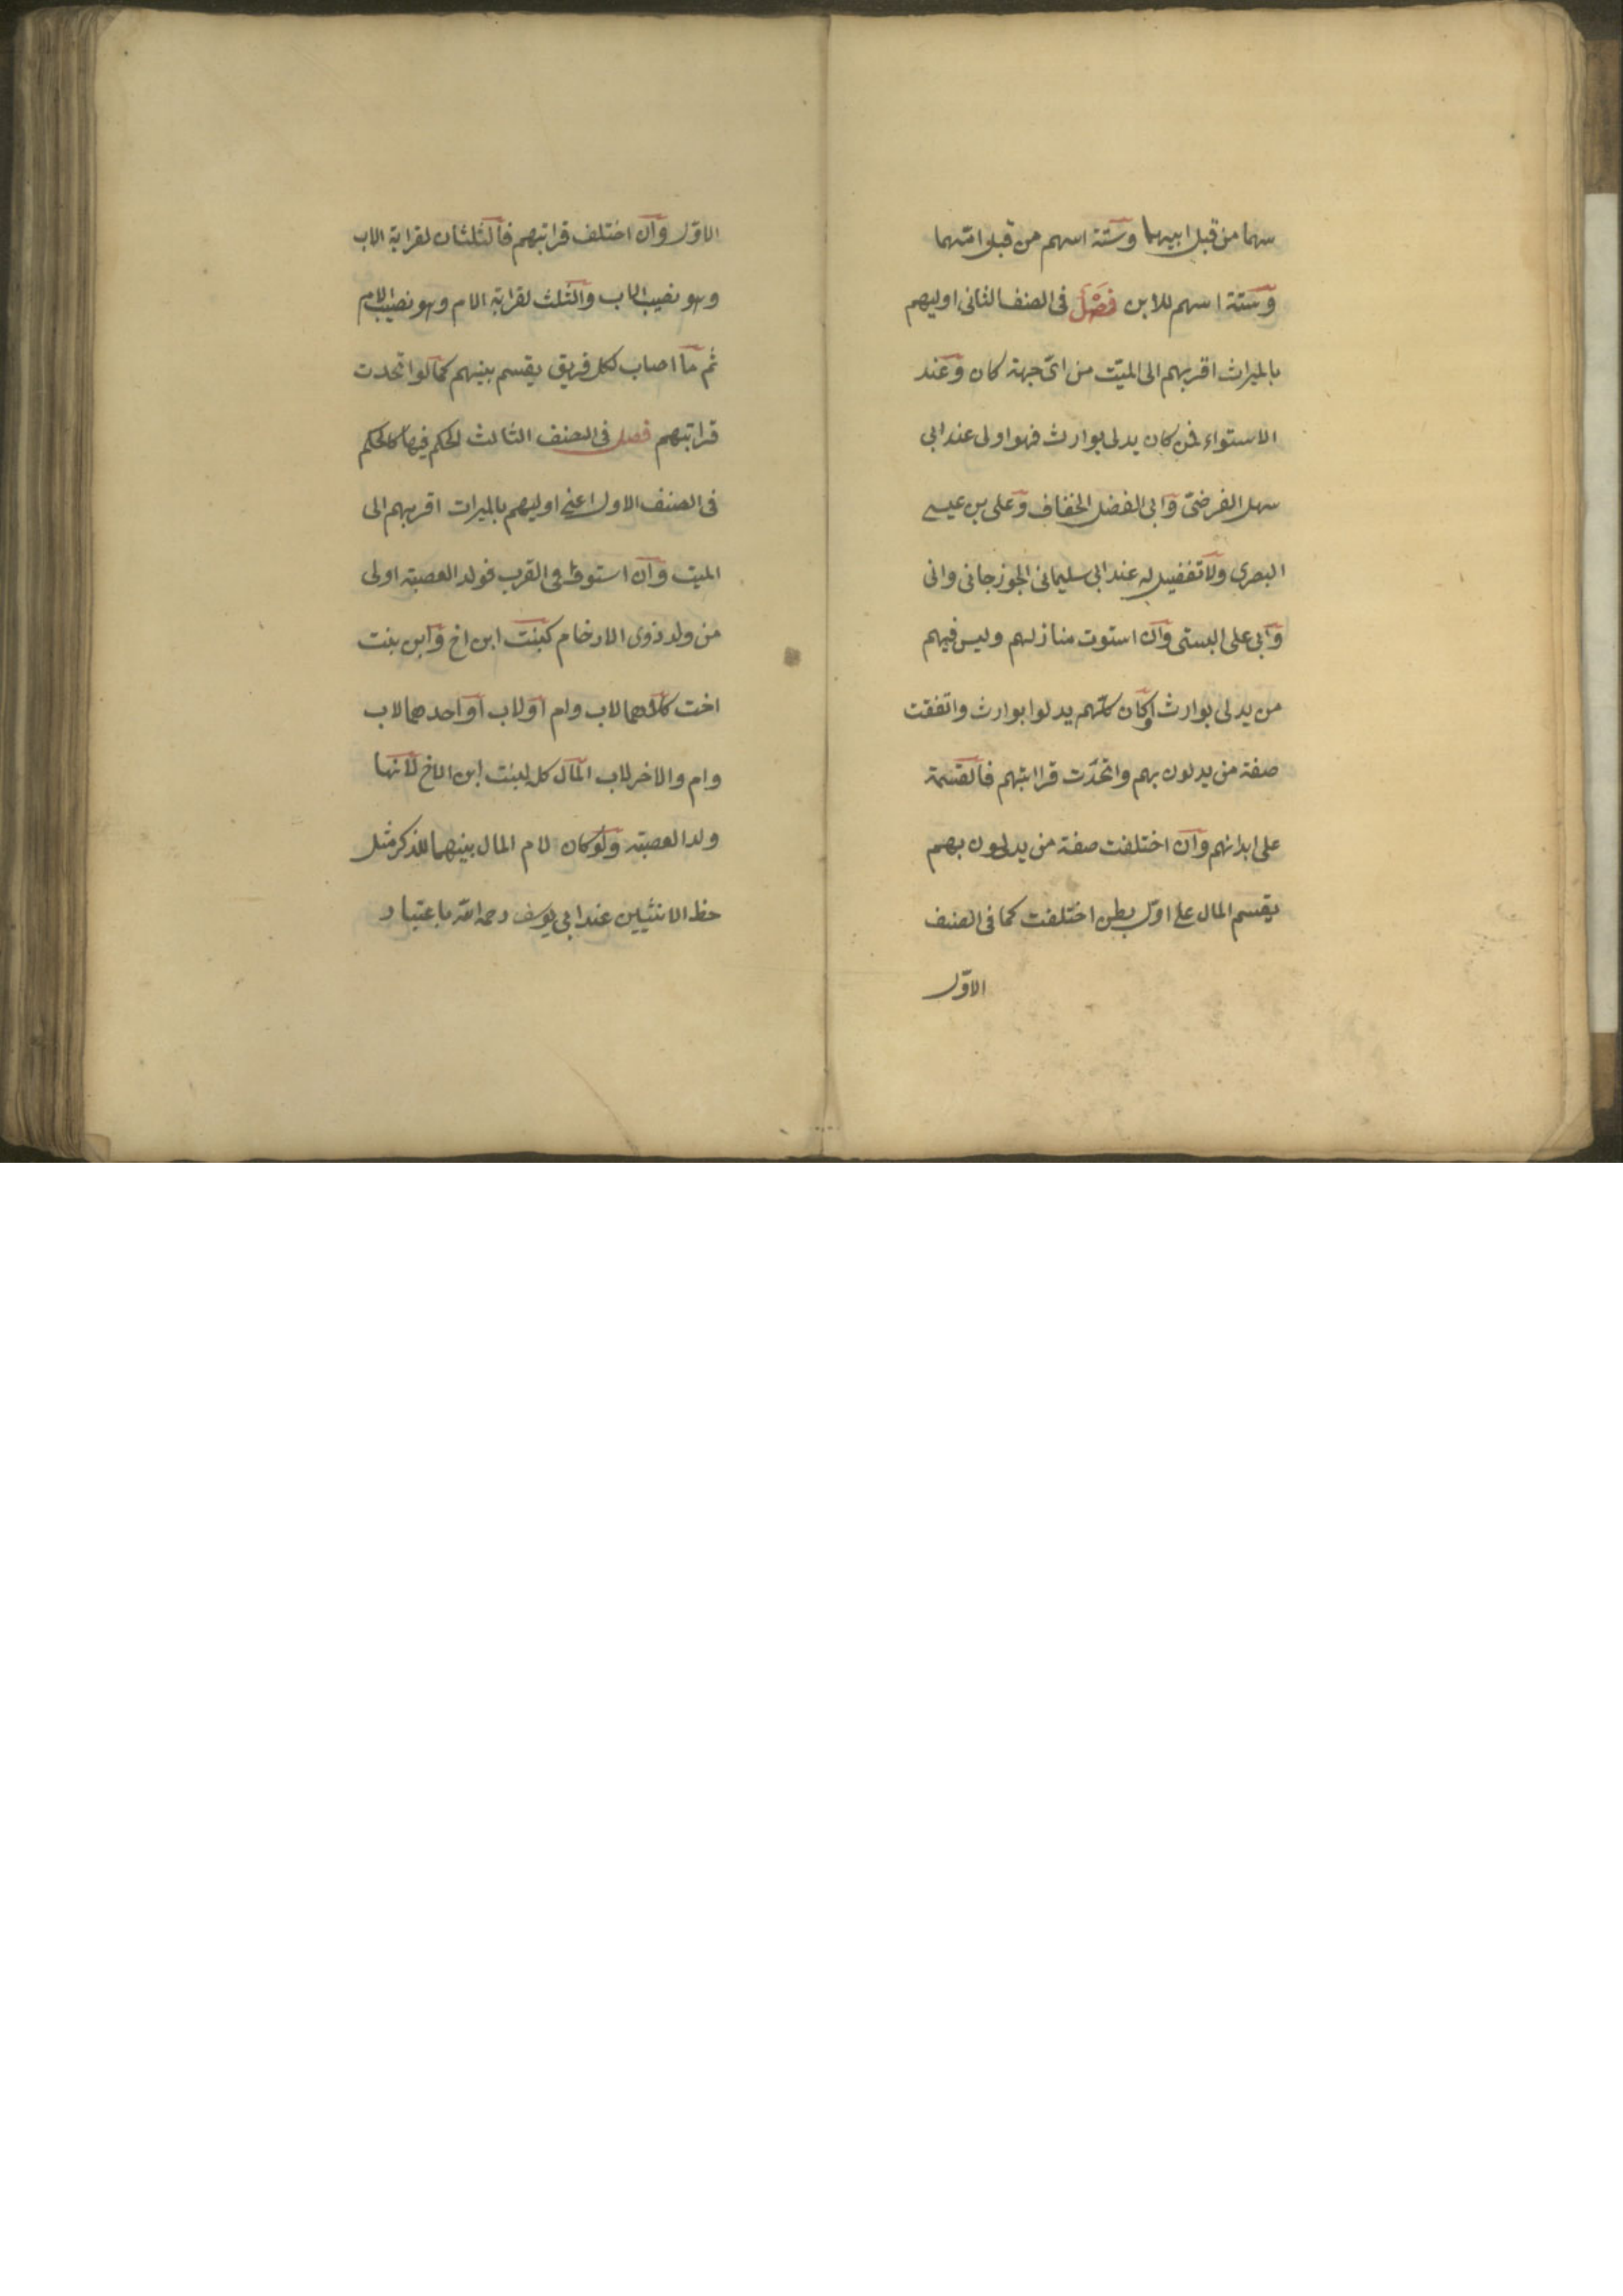 سهما من قبل ابيهما وستة اسهم من قبل امّهما
وستّة اسهم للابن فَصْلٌ فى الصنف الثانى اوليهم
بالميراث اقربهم الى الميّت من اىّ جهة كان وعند
الاستواء فمن كان يدلى بوارث فهو اولى عند ابى
سهل الفرضىّ وابى الفضل الخفاف وعلى بن عيسى
البصرى ولا تفضيل له عند ابى سليمانى الجوزجانى وانى
وابى على البستى وان استوت منازلهم وليس فيهم
من يدلى بوارث اوكان كلّهم يدلوا بوارث واتفقت
صفة من يدلون بهم واتحدت قرابتهم فالقسمة
على ابدانهم وان اختلفت صفة من يدلون بهم
يقسم المال على اوّل بطن اختلفت كما فى الصنف
الاوّل
الاوّل وان اختلف قرابتهم فالثلثان لقرابة الاب
وهو نصيب الاب والثلث لقرابة الام وهو نصيب الام
ثم ما اصاب لكل فريق يقسم بينهم كما لو اتحدت
قرابتهم فصل فى الصنف الثالث الحكم فيها كالحكم
فى الصنف الاول اعنى اوليهم بالميراث اقربهم الى
الميت وان استووا فى القرب فولد العصبة اولى
من ولد ذوى الارحام كبنت ابن اخ وابن بنت
اخت كلاهما لاب وام اولاب او احدهما لاب
وام والاخر لاب المال كله لبنت ابن الاخ لانها
ولد العصبة ولو كان لام المال بينهما للذكر مثل
حظ الانثيين عند ابى يوسف رحمه الله باعتبار